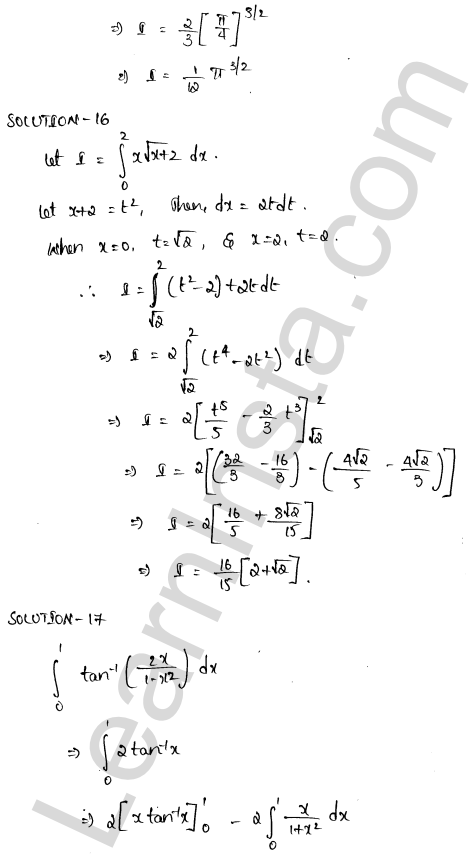 ⇒ I = 2/3 [π/4]^3/2
⇒ I = 1/12 π^3/2
SOLUTION-16
Let I = ∫₀² x√x+2 dx.
Let x+2 = t², Then, dx = 2tdt.
When x=0, t=√2, & x=2, t=2.
∴ I = ∫_√2^2 (t²-2)t2t dt
⇒ I = 2 ∫_√2^2 (t⁴-2t²) dt
⇒ I = 2[t⁵/5 - 2/3 t³]_√2^2
⇒ I = 2[(32/3 - 16/3) - (4√2/5 - 4√2/3)]
⇒ I = 2[16/5 + 8√2/15]
⇒ I = 16/15 [2+√2].
SOLUTION-17
∫₀¹ tan⁻¹(2x/1-x²) dx
⇒ ∫₀¹ 2tan⁻¹x
⇒ 2[x tan⁻¹x]₀¹ - 2∫₀¹ x/1+x² dx
LearnInsta.com